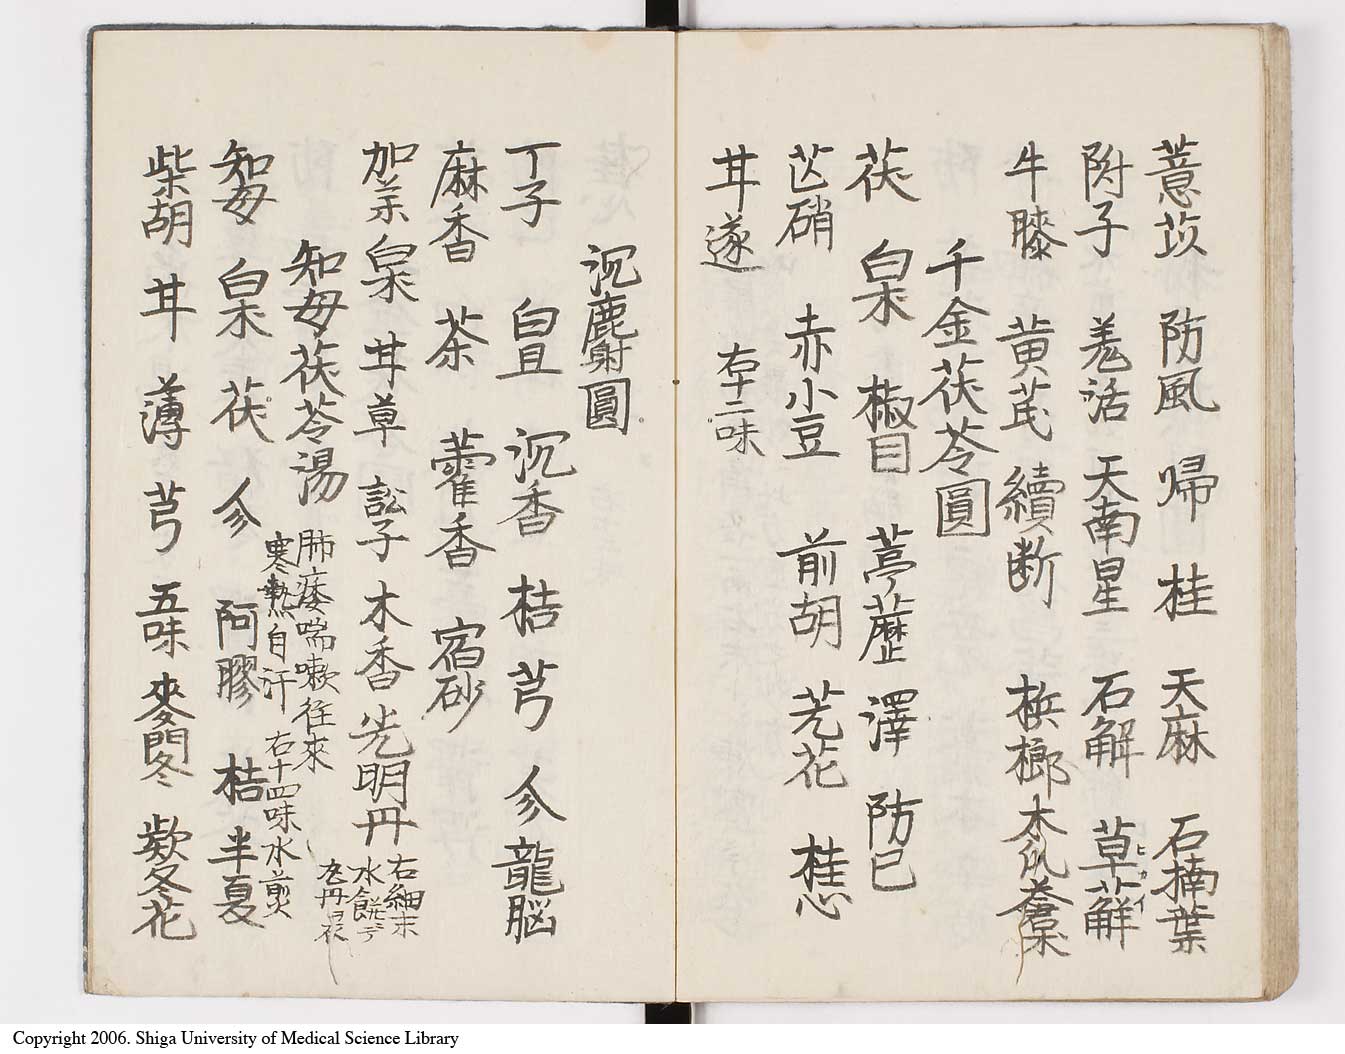 薏苡 防風 帰 桂 天麻 石楠葉
附子 羗活 天南星 石解 草薢 ヒカイ
牛膝 黄芪 續断 梹榔 木瓜 蒼朮
千金茯苓圓
茯 白朮 椒目 葶藶 澤 防已
芒硝 赤小豆 前胡 芫花 桂心
甘遂 右十二味
沉麝圓
丁子 白豆 沉香 桔 芎 参 龍脳
麻香 茶 藿香 宿砂
加芣 白朮 甘草 訟子 木香 光明丹 右細末
水餻デ
丹ヲ衣
知母茯苓湯 肺痿喘嗽往來
寒熱自汗 右十四味水煎
知母 白朮 茯 参 阿膠 桔 半夏
柴胡 甘 薄 芎 五味 麥門冬 欵冬花
Copyright 2006. Shiga University of Medical Science Library